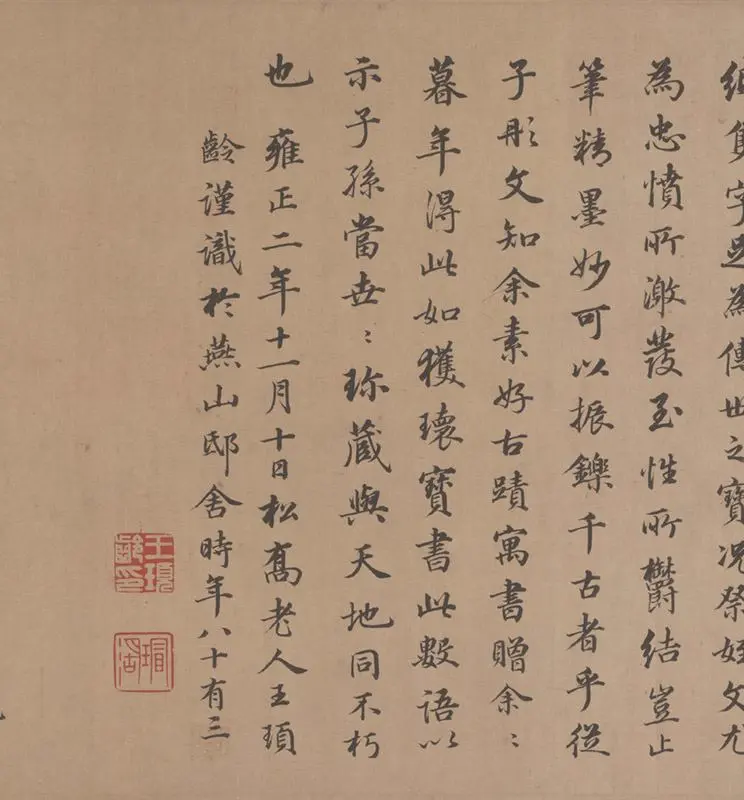 紙隻字足為傳世之寶況祭姪文尤
為忠憤所激發至性所鬱結豈止
筆精墨妙可以振鑠千古者乎從
子彤文知余素好古蹟寓書贈余〻
暮年得此如獲瓌寶書此數語以
示子孫當世〻珍藏與天地同不朽
也 雍正二年十一月十日松喬老人王頊
齡謹識於燕山邸舍時年八十有三
王頊齡印